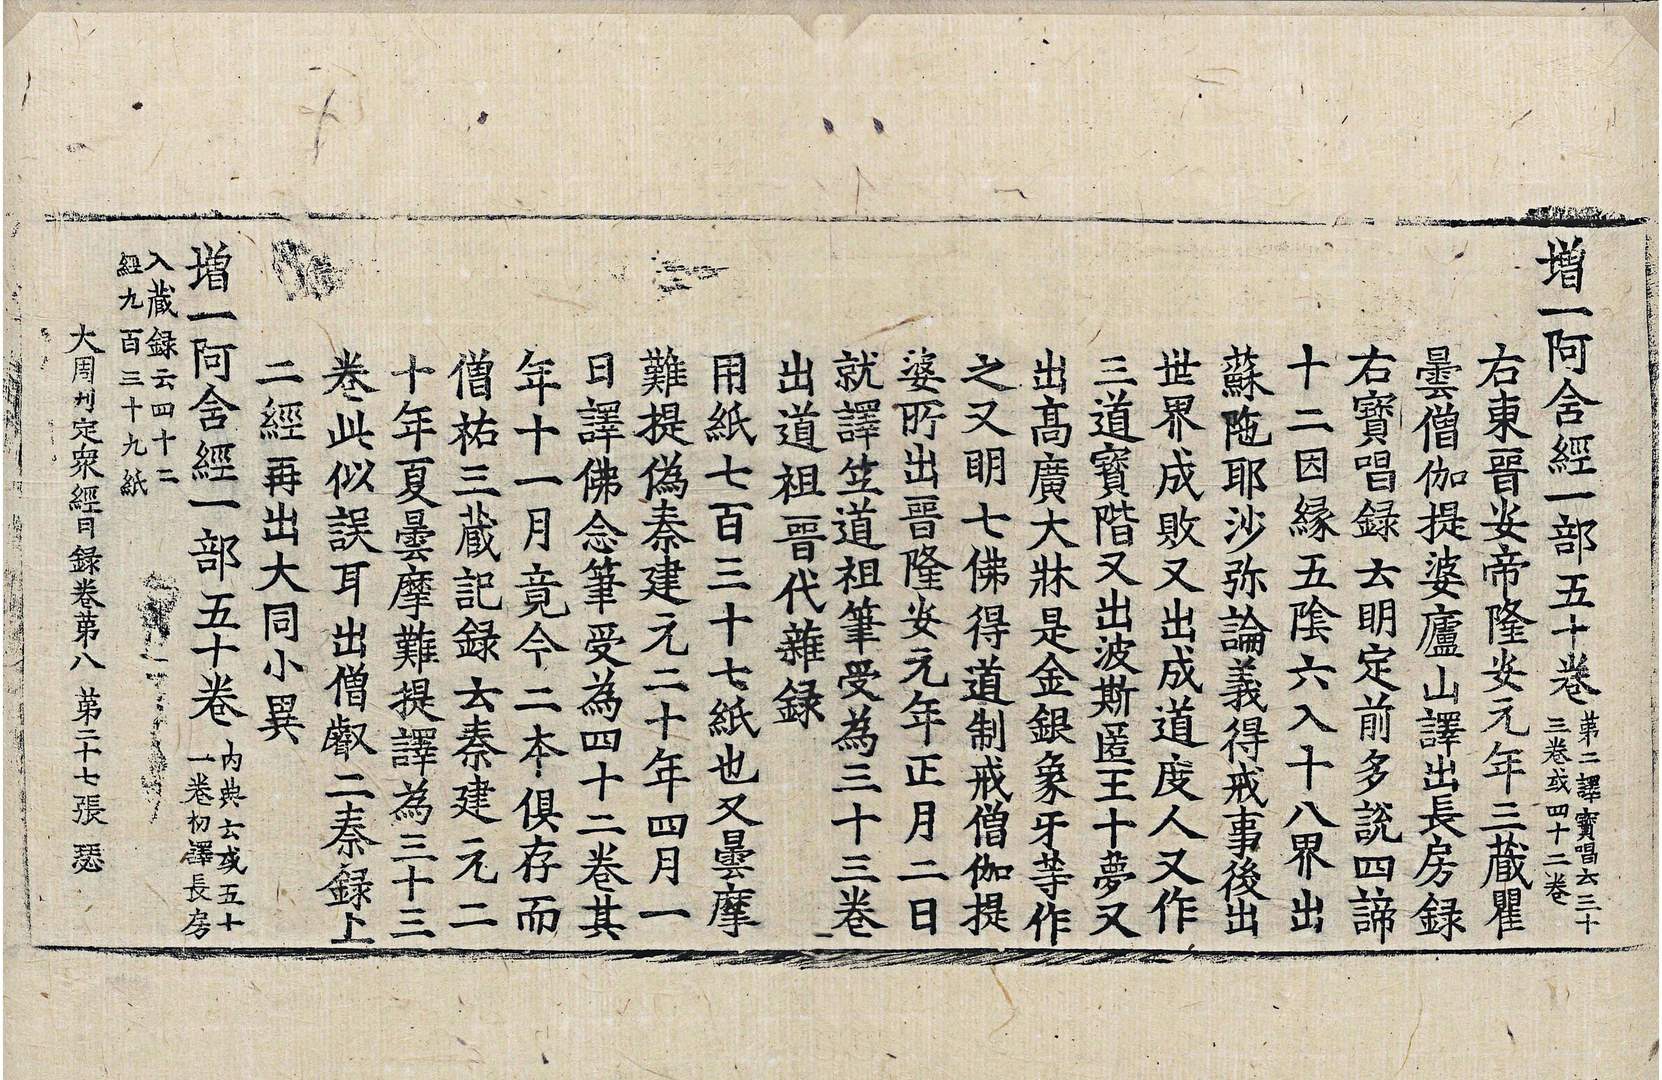 増一阿含經一部五十卷第二譯寶唱云三十
三卷或四十二卷
右東晉安帝隆安元年三藏瞿
曇僧伽提婆廬山譯出長房録
右寶唱録云明定前多說四諦
十二因縁五陰六入十八界出
蘇陁耶沙弥論義得戒事後出
世界成敗又出成道度人又作
三道寶階又出波斯匿王十夢又
出髙廣大牀是金銀象牙等作
之又明七佛得道制戒僧伽提
婆所出晉隆安元年正月二日
就譯竺道祖筆受為三十三卷
出道祖晉代雜録
用紙七百三十七紙也又曇摩
難提偽秦建元二十年四月一
日譯佛念筆受為四十二卷其
年十一月竟今二本俱存而
僧祐三藏記録云秦建元二
十年夏曇摩難提譯為三十三
卷此似誤耳出僧叡二秦録上
二經再出大同小異
増一阿含經一部五十卷内典云或五十
一卷初譯長房
入藏録云四十二
經九百三十九紙
大周刋定衆經目録卷苐八 苐二十七張 瑟